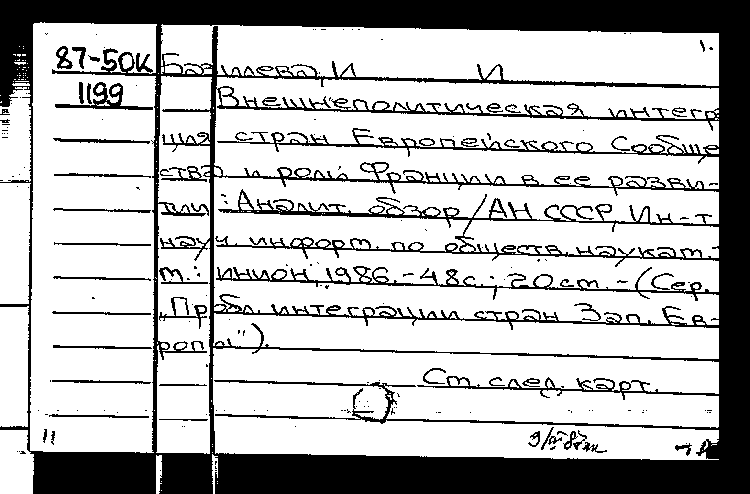 1.
87-50К Базилева, И И
1199 Внешнеполитическая интегр
ция стран Европейского Сообще
ства и роль Франции в ее разви-
тии : Аналит. обзор / АН СССР, Ин-т
науч. информ. по обществ. наукам. -
т.: ИНИОН, 1986. - 48с.; 20 см. - (Сер.
„Пробл. интеграции стран Зап. Ев-
ропы").
См. след. карт.
11